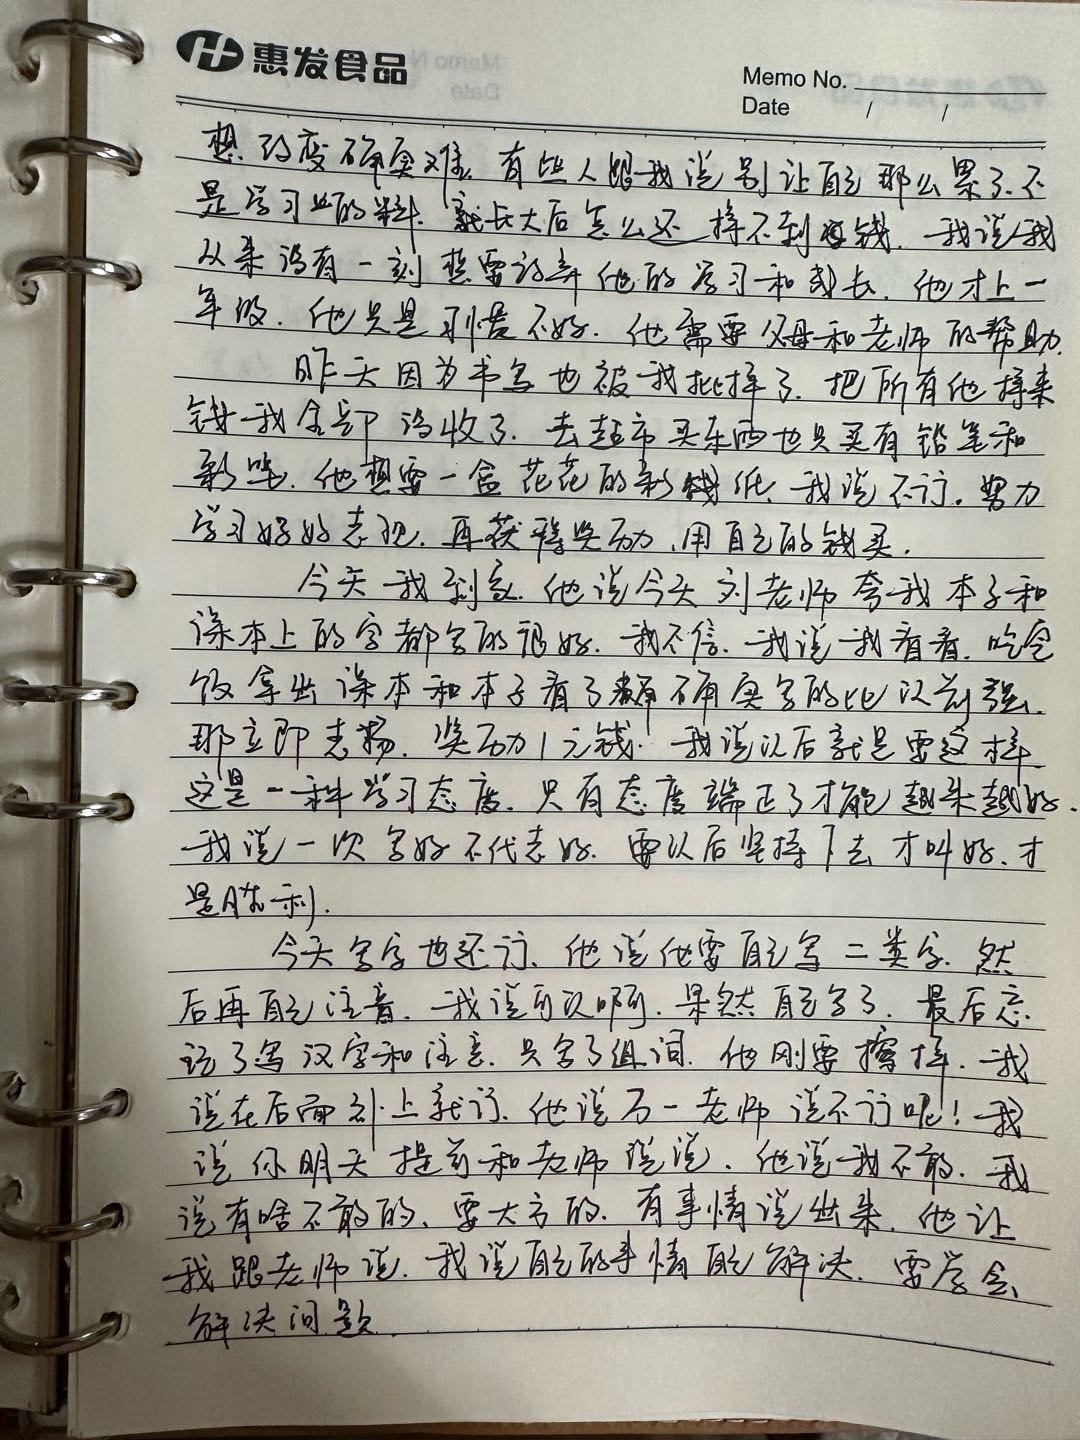 惠发食品
Memo No.
Date / /
想改变确实难.有些人跟我说别让自己那么累了.不
是学习的料.就长大后怎么还挣不到钱.我说我
从来没有一刻想要放弃他的学习和成长.他才上一
年级.他只是习惯不好.他需要父母和老师的帮助.
昨天因为书写也被我批择了.把所有他挣来
钱我全部没收了.去超市买东西也只买有铅笔和
彩笔.他想要一盒花花的彩纸.我说不行.努力
学习好好表现.再获得奖励.用自己的钱买.
今天我到家.他说今天刘老师夸我本子和
课本上的字都写的很好.我不信.我说我看看.吃完
饭拿出课本和本子看了确实写的比以前强.
那立即表扬.奖励1元钱.我说以后就是要这样.
这是一种学习态度.只有态度端正了才能越来越好.
我说一次写好不代表好.要以后坚持下去才叫好.才
是胜利.
今天写字也还行.他说他要自己写二类字.然
后再自己注音.我说可以啊.果然自己写了.最后忘
记了写汉字和注音.只写了组词.他刚要擦掉.我
说在后面补上就行.他说万一老师说不行呢!我
说你明天提前和老师说说.他说我不敢.我
说有啥不敢的.要大方的.有事情说出来.他让
我跟老师说.我说自己的事情自己解决.要学会
解决问题.